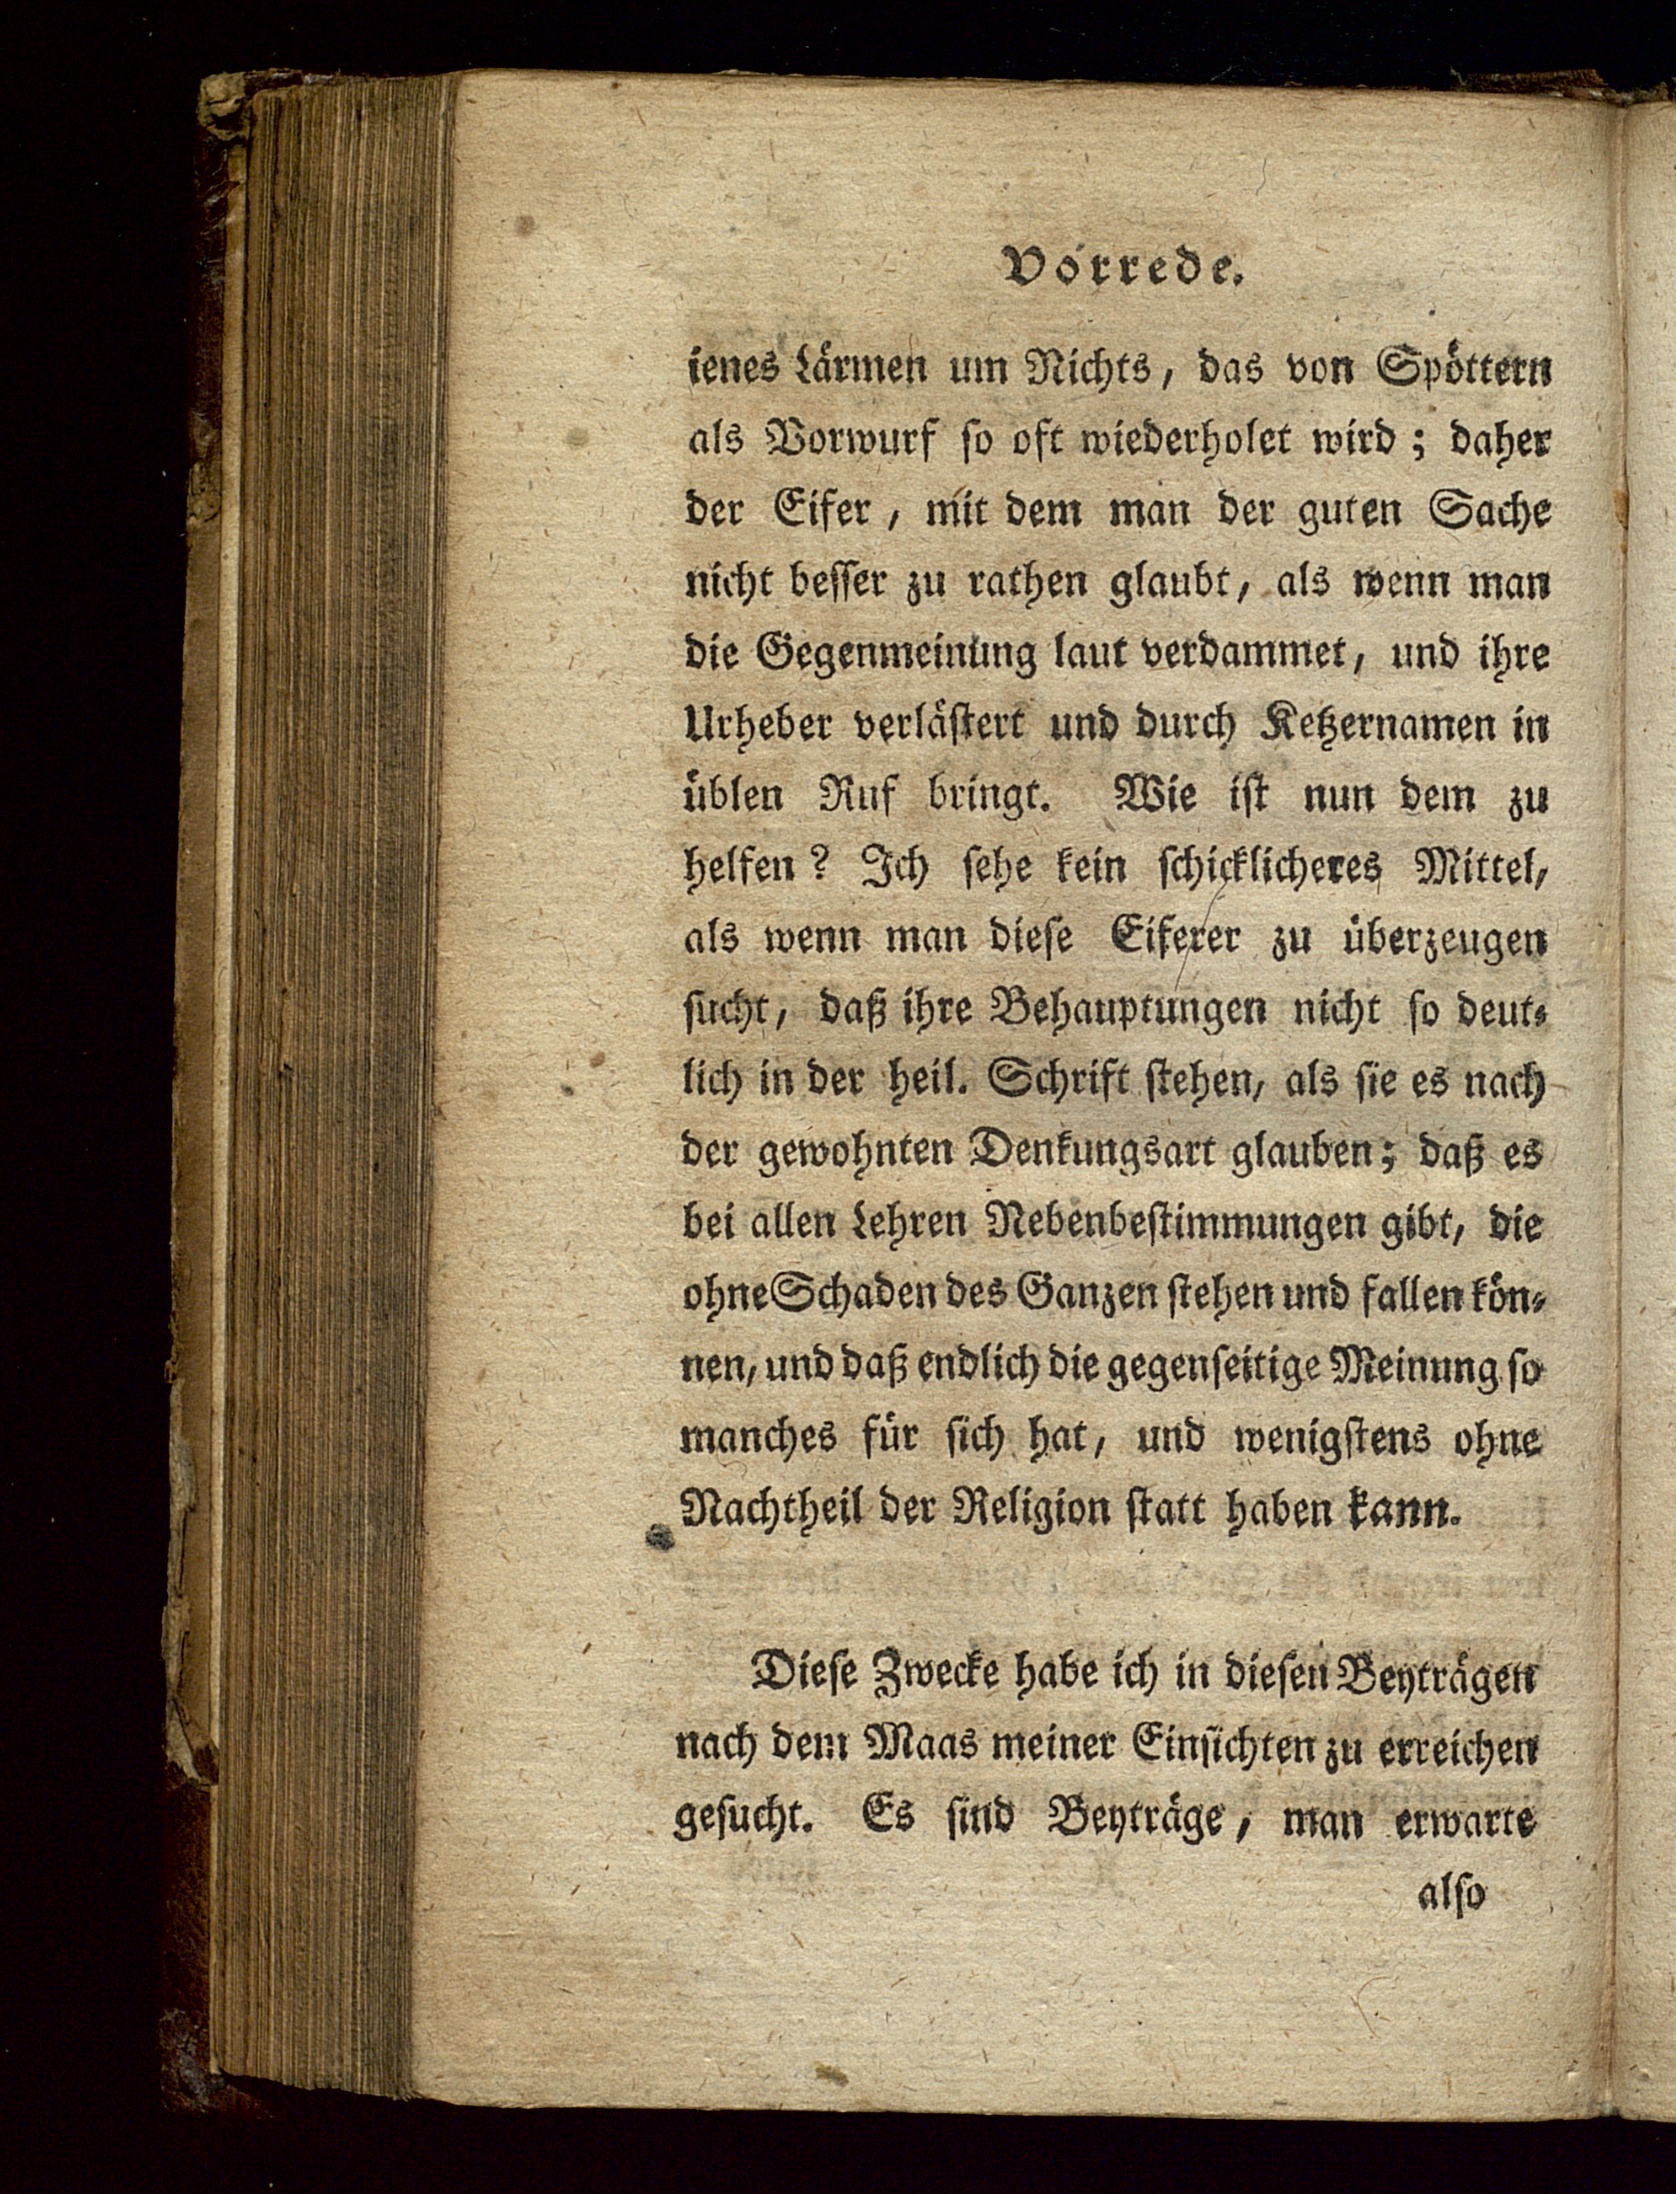 Vorrede.
ienes Lärmen um Nichts, das von Spöttern
als Vorwurf ſo oft wiederholet wird; daher
der Eifer, mit dem man der guten Sache
nicht beſſer zu rathen glaubt, als wenn man
die Gegenmeinung laut verdammet, und ihre
Urheber verläſtert und durch Ketzernamen in
üblen Ruf bringt. Wie iſt nun dem zu
helfen? Ich ſehe kein ſchicklicheres Mittel,
als wenn man dieſe Eiferer zu überzeugen
ſucht, daß ihre Behauptungen nicht ſo deut⸗
lich in der heil. Schrift ſtehen, als ſie es nach
der gewohnten Denkungsart glauben; daß es
bei allen Lehren Nebenbeſtimmungen gibt, die
ohne Schaden des Ganzen ſtehen und fallen kön⸗
nen, und daß endlich die gegenſeitige Meinung ſo
manches für ſich hat, und wenigſtens ohne
Nachtheil der Religion ſtatt haben kann.
Dieſe Zwecke habe ich in dieſen Beyträgen
nach dem Maas meiner Einſichten zu erreichen
geſucht. Es ſind Beyträge, man erwarte
alſo